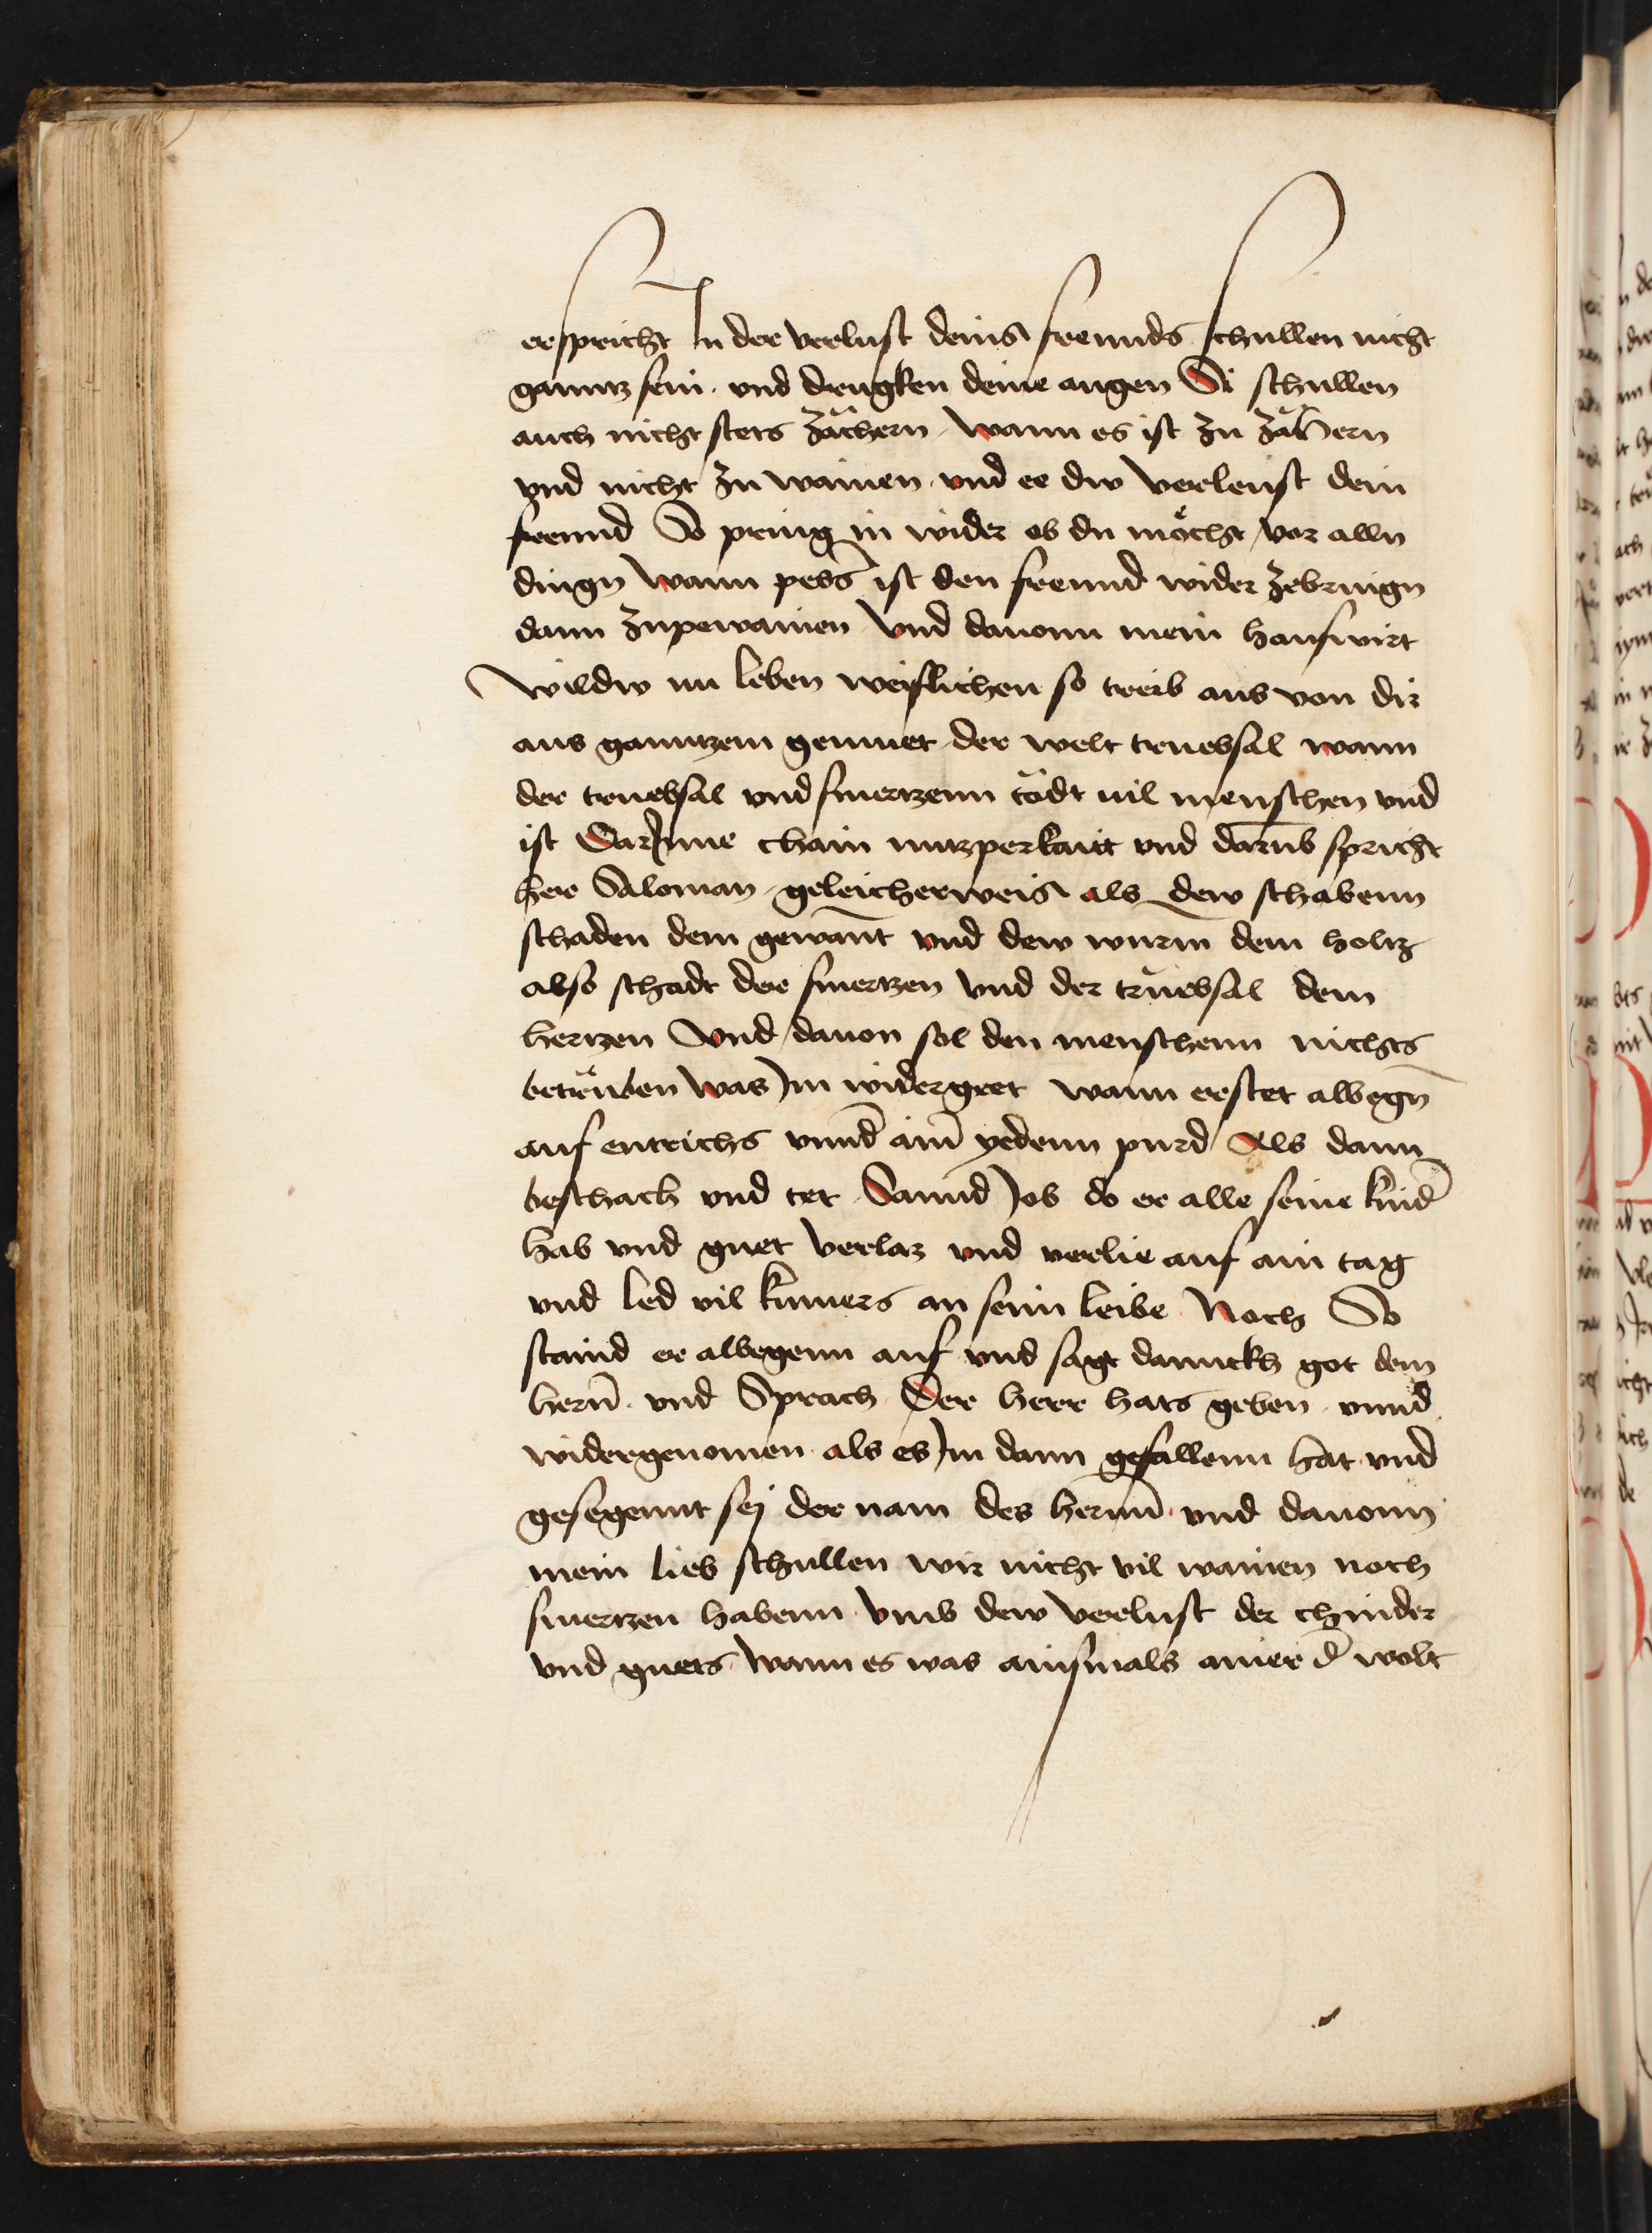 er spricht In der verlust deins freunds schullen nicht
ganntz sein. vnd drugken deine augen Si schullen
auch nicht stets zächern. wann es ist zu zähern
vnd nicht zu wainen. vnd ee dw verleust dein
freund So pring in wider ob du möcht vor alln
dingn wann pess ist den freund wider zebringn
dann zupewainen Vnd dauonn mein hauswirt
wildw nu leben weislichen so treib aus von dir
aus ganntzem gemuet der welt truebsal wann
der truebsal vnd smertzenn tödt uil menschen vnd
ist Darjnne chain nutzperkait vnd darūb spricht
her Saloman. geleicherweis als dew schabenn
schaden dem gewant vnd dew wurm dem holtz
also schadt der smertzen Vnd der truebsal dem
hertzen Vnd dauon sol den menschenn nichts
betrüben was Jm widergeet wann er stet albegn
auf entrichs vnnd̄ aim yedenn purd Als dann
beschach vnd tet Sannd Job do er alle seine kind̄
hab vnd guet verlaz vnd verlie auf ain tag
vnd led vil kumers an seim leibe Noch So
stuind er albegenn auf vnd sagt dannckh got dem
hern̄. vnd Sprach Der herr hats geben. vnnd
widergenomen als es Jm dann gefallenn hat. vnd
gesegennt sej der nam des hernn̄. vnd dauonn
mein lieb schullen wir nicht vil wainen noch
smertzen habenn. vmb dew verlust der chinder
vnd guets wann es was ainsmals ainer d̄ wolt